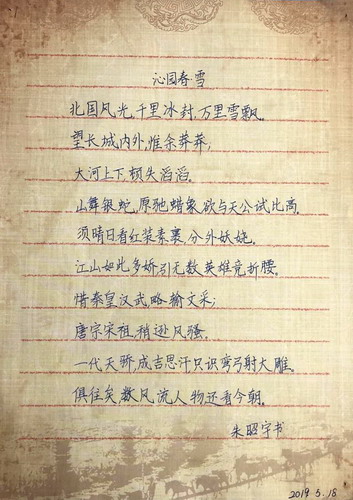 沁园春·雪
北国风光,千里冰封,万里雪飘.
望长城内外,惟余莽莽,
大河上下,顿失滔滔.
山舞银蛇,原驰蜡象,欲与天公试比高.
须晴日看红装素裹,分外妖娆.
江山如此多娇,引无数英雄竞折腰.
惜秦皇汉武,略输文采;
唐宗宋祖,稍逊风骚.
一代天骄,成吉思汗只识弯弓射大雕.
俱往矣,数风流人物还看今朝.
朱昭宇书
2019.5.18